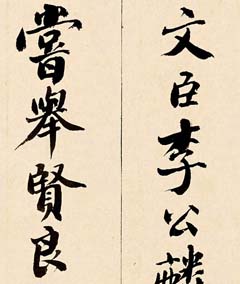 文臣李公麟
嘗舉賢良